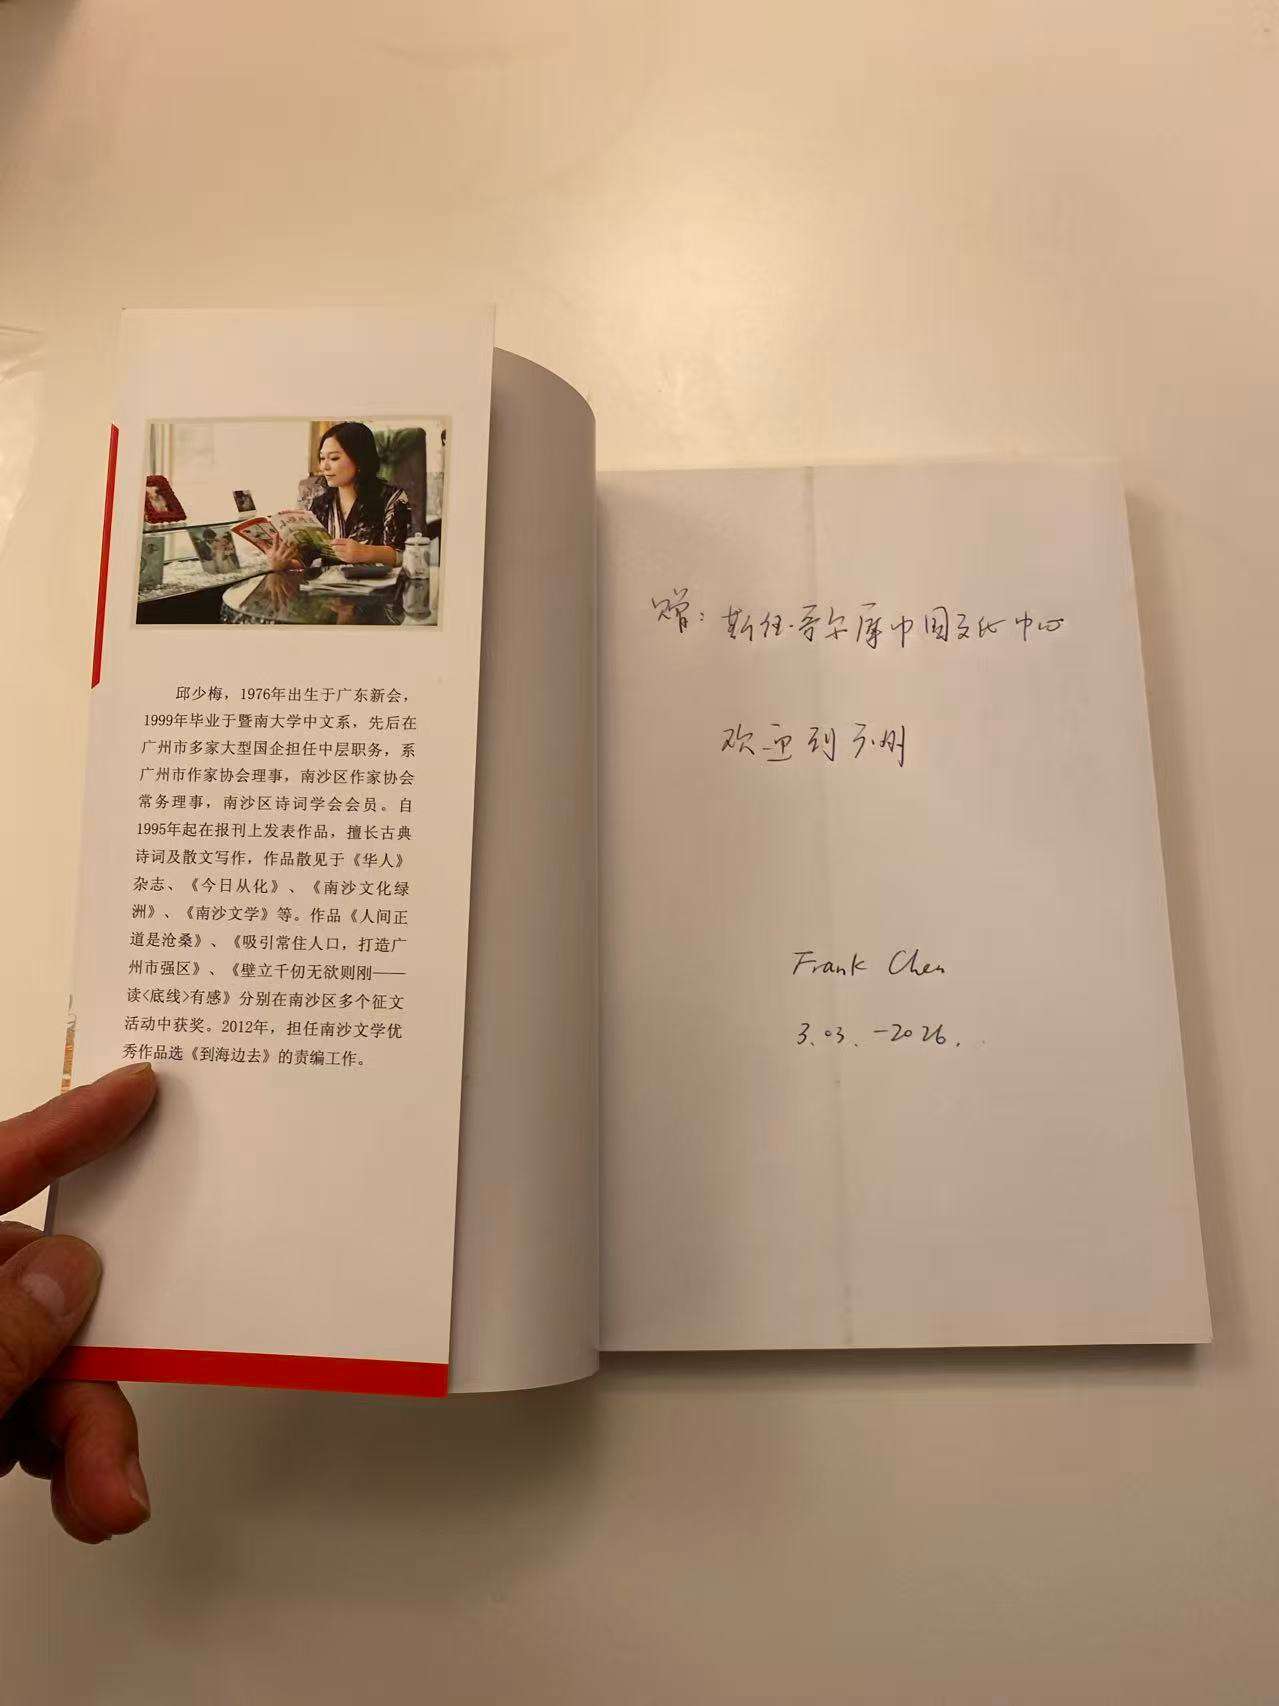 邱少梅，1976年出生于广东新会，
1999年毕业于暨南大学中文系，先后在
广州市多家大型国企担任中层职务，系
广州市作家协会理事，南沙区作家协会
常务理事，南沙区诗词学会会员。自
1995年起在报刊上发表作品，擅长古典
诗词及散文写作，作品散见于《华人》
杂志、《今日从化》、《南沙文化绿
洲》、《南沙文学》等。作品《人间正
道是沧桑》、《吸引常住人口，打造广
州市强区》、《壁立千仞无欲则刚——
读<底线>有感》分别在南沙区多个征文
活动中获奖。2012年，担任南沙文学优
秀作品选《到海边去》的责编工作。
赠：斯德哥尔摩中国文化中心
欢迎到广州
Frank Chen
3.03.-2026.